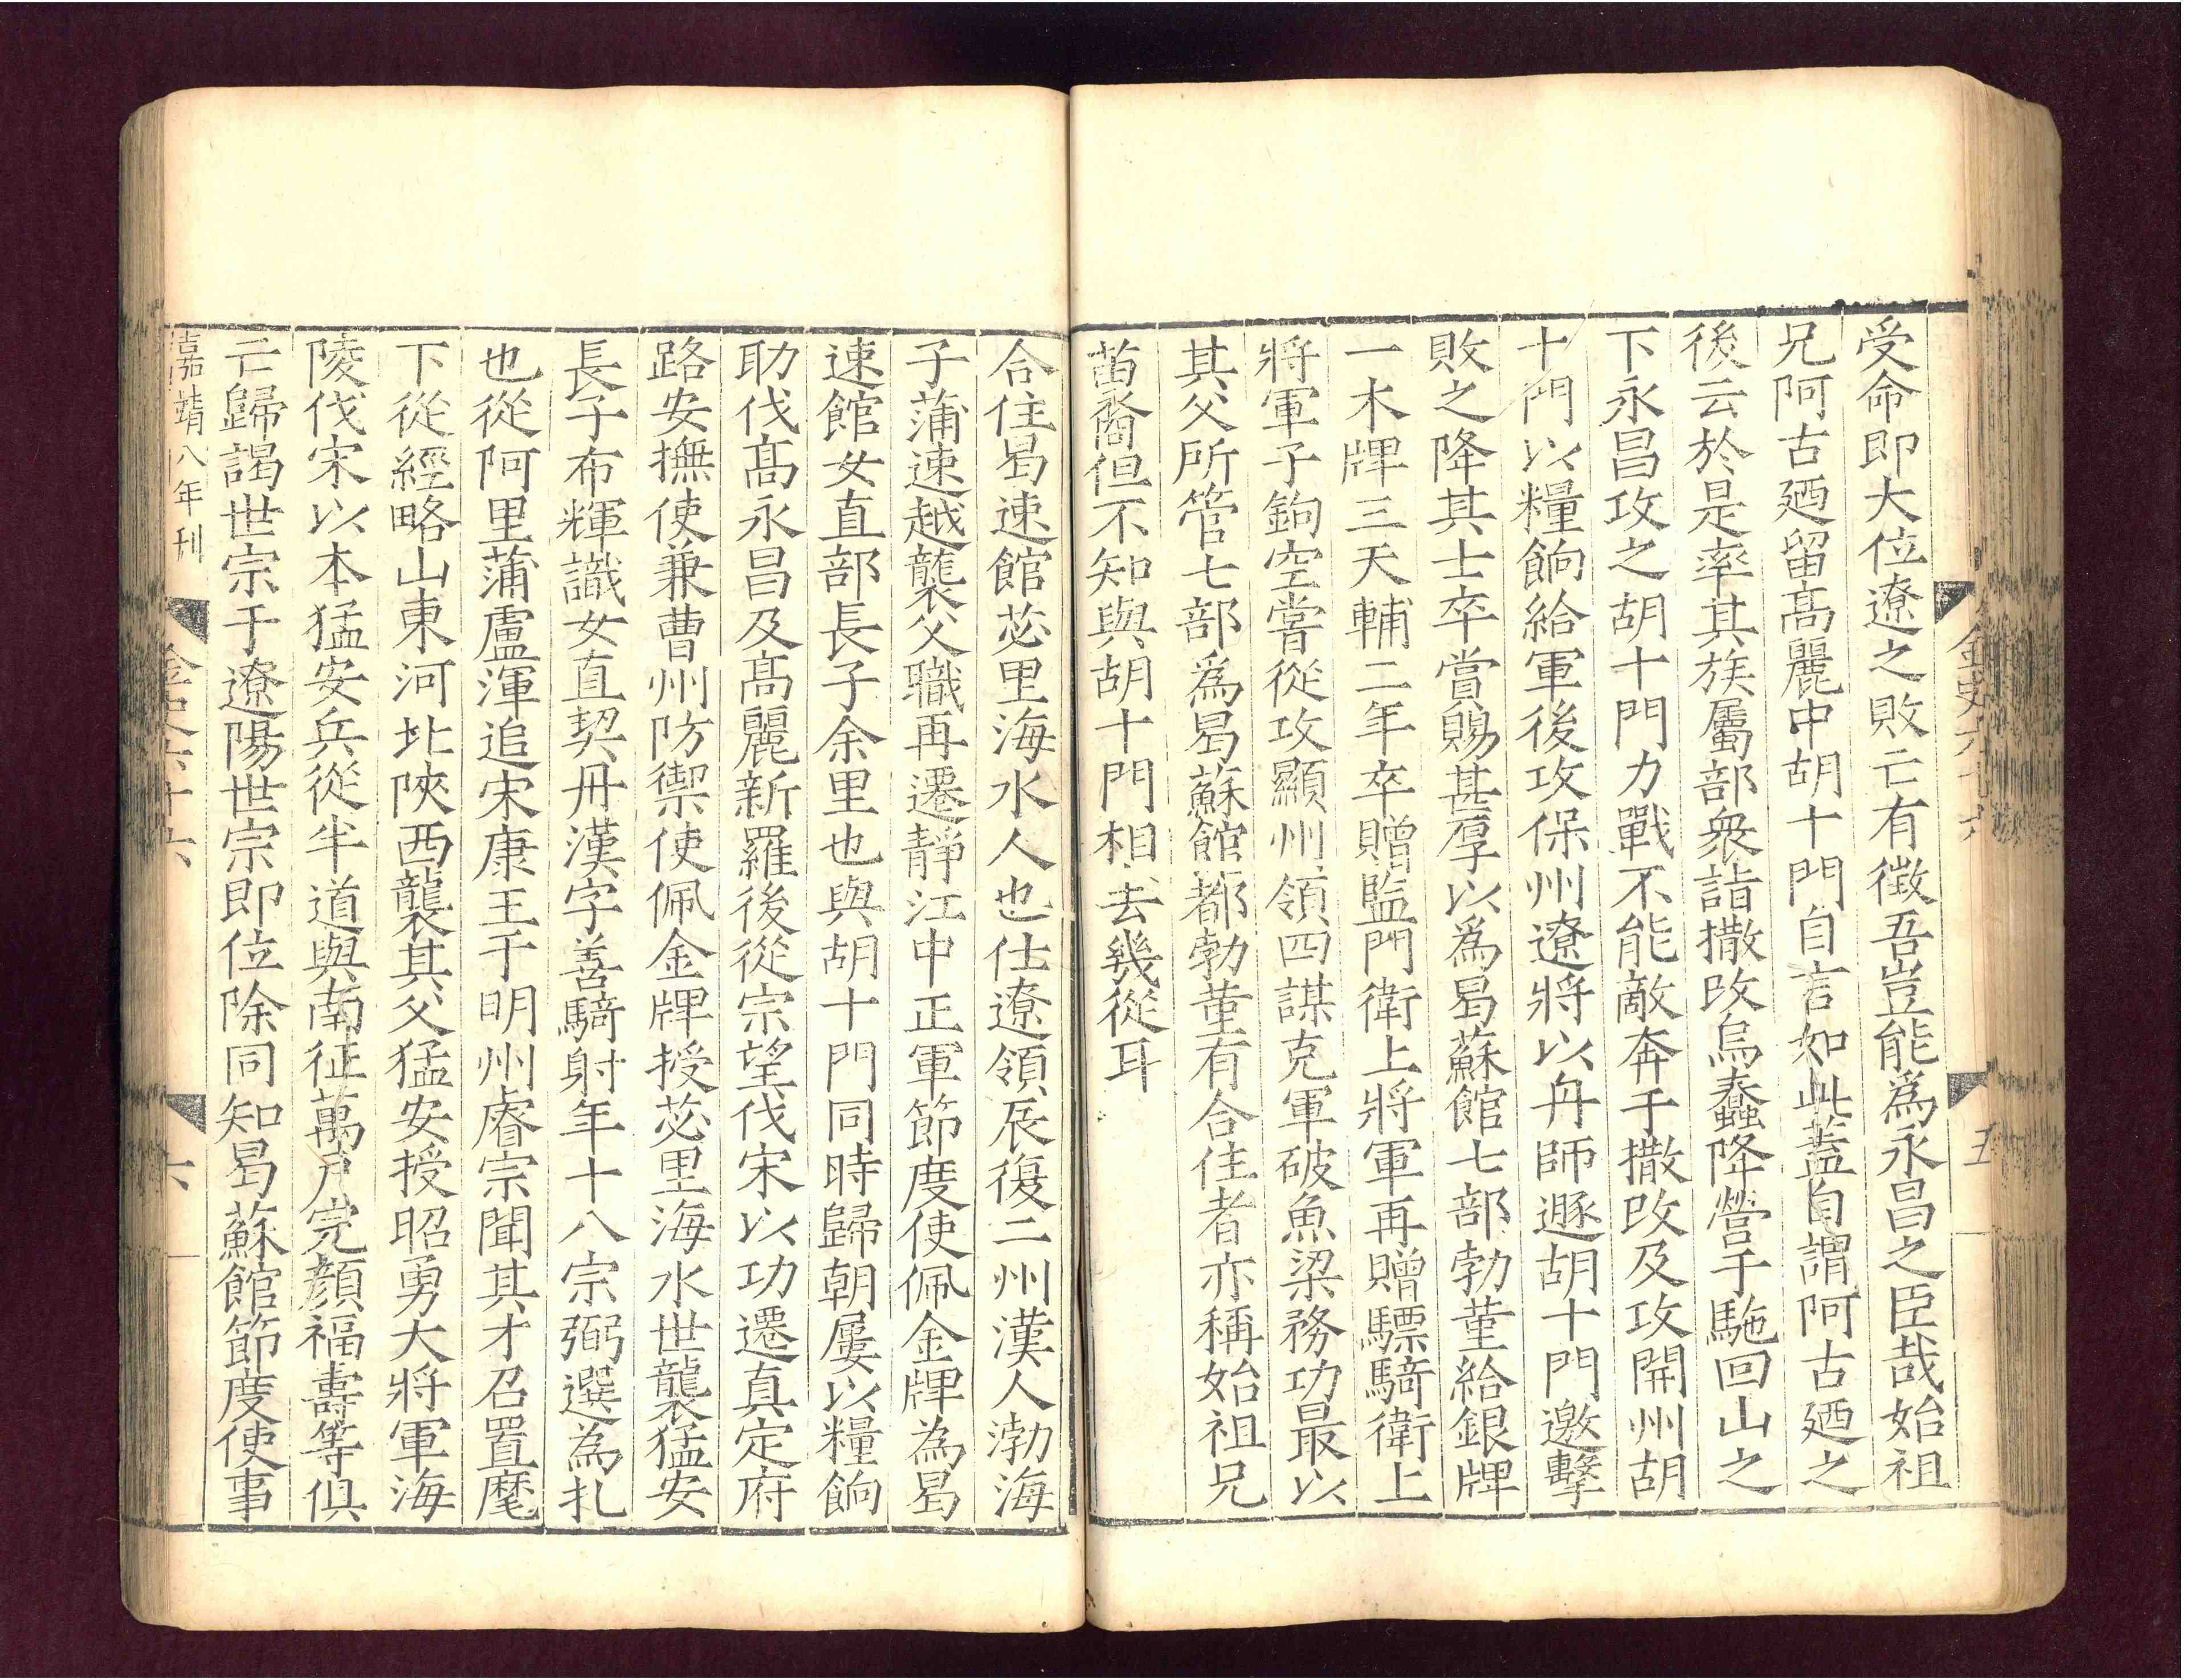 受命即大位遼之敗亡有徵吾豈能爲永昌之臣哉始祖
兄阿古廼留髙麗中胡十門自言如此蓋自謂阿古廼之
後云於是率其族屬部衆詣撒改烏蠢降營于駞回山之
下永昌攻之胡十門力戰不能敵奔于撒改及攻開州胡
十門以糧餉給軍後攻保州遼將以舟師遯胡十門邀擊
敗之降其士卒賞賜甚厚以爲曷蘇館七部勃堇給銀牌
一木牌三天輔二年卒贈監門衛上將軍再贈驃騎衛上
將軍子鉤空嘗從攻顯州領四謀克軍破魚梁務功最以
其父所管七部爲曷蘇館都勃堇有合住者亦稱始祖兄
苗裔但不知與胡十門相去幾從耳
金史六十六
五
合住曷速館苾里海水人也仕遼領辰復二州漢人渤海
子蒲速越襲父職再遷靜江中正軍節度使佩金牌為曷
速館女直部長子余里也與胡十門同時歸朝屢以糧餉
助伐髙永昌及髙麗新羅後從宗望伐宋以功遷真定府
路安撫使兼曹州防禦使佩金牌授苾里海水世襲猛安
長子布輝識女直契丹漢字善騎射年十八宗弼選為扎
也從阿里蒲盧渾追宋康王于明州睿宗聞其才召置麾
下從經略山東河北陝西襲其父猛安授昭勇大將軍海
陵伐宋以本猛安兵從半道與南征萬户完顔福壽等俱
亡歸謁世宗于遼陽世宗即位除同知曷蘇館節度使事
嘉靖八年刊
金史六十六
六